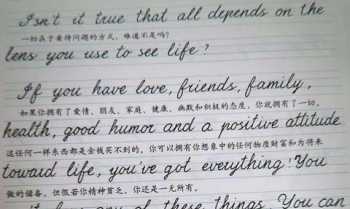 Isn't it true that all depends on the
一切在于看待问题的方式，难道不是吗？
lens you use to see life?
If you have love, friends, family,
如果你拥有了爱情、朋友、家庭、健康、幽默和积极的态度，你就拥有了一切。
health, good humor and a positive attitude
这任何一样东西都是金钱买不到的，你可以拥有你想象中的任何物质财富和为将来
toward life, you've got everything! You
做的储备，但假若你精神贫乏，你还是一无所有。
any of these things. You can